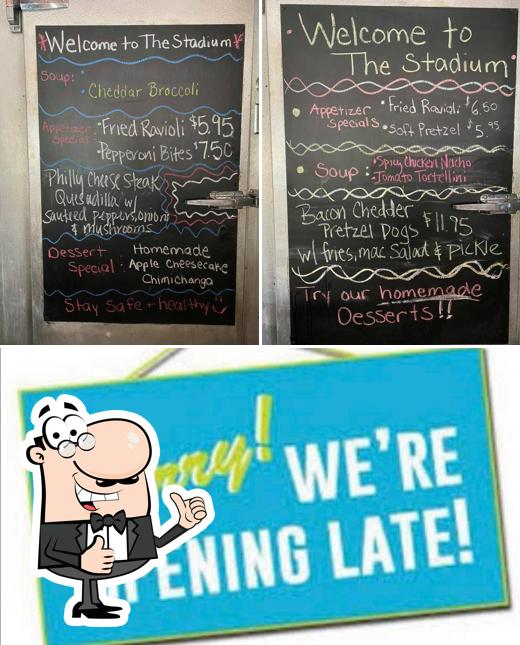 Welcome to The Stadium
Soup:
• Cheddar Broccoli
Appetizer
Special
• Fried Ravioli $5.95
• Pepperoni Bites $7.50
Philly Cheese Steak
Quesadilla w/
sauteed peppers, onions
& mushrooms
Dessert
Special:
Homemade
Apple Cheesecake
Chimichanga
Stay Safe + healthy
Welcome to
The Stadium
• Appetizer
Specials
• Fried Ravioli $6.50
• Soft Pretzel $5.95
• Soup:
• Spicy Chicken Nacho
• Tomato Tortellini
Bacon Cheddar
Pretzel Dogs $11.95
w/ fries, mac Salad & Pickle
Try our homemade
Desserts!!
rry!
WE'RE
ENING LATE!